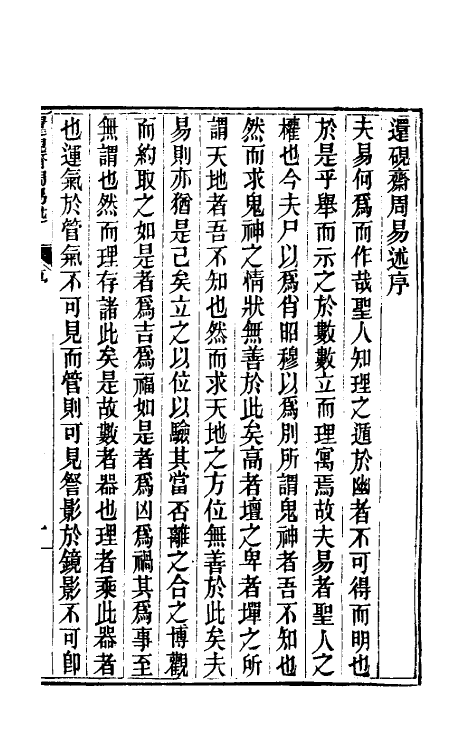 還硯齋周易述序
夫易何爲而作哉聖人知理之遁於幽者不可得而明也
於是乎舉而示之於數數立而理寓焉故夫易者聖人之
權也今夫尸以爲肖昭穆以爲別所謂鬼神者吾不知也
然而求鬼神之情狀無善於此矣高者壇之卑者墠之所
謂天地者吾不知也然而求天地之方位無善於此矣夫
易則亦猶是已矣立之以位以驗其當否離之合之博觀
而約取之如是者爲吉爲福如是者爲凶爲禍其爲事至
無謂也然而理存諸此矣是故數者器也理者乘此器者
也運氣於管氣不可見而管則可見詧影於鏡影不可卽